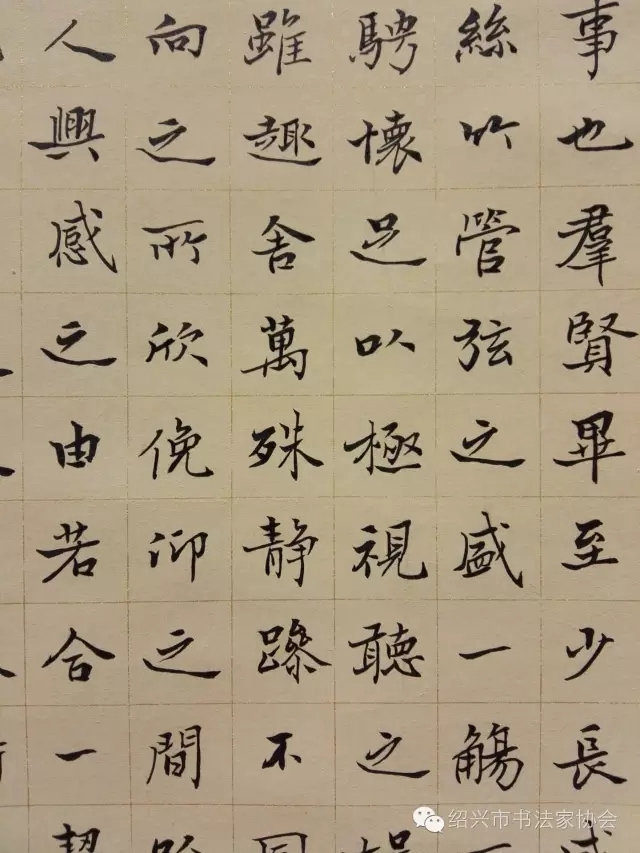 事也羣賢畢至少長咸
絲竹管弦之盛一觴一
騁懷足以極視聽之娛
雖趣舍萬殊静躁不同
向之所欣俛仰之間
人興感之由若合一契
绍兴市书法家协会